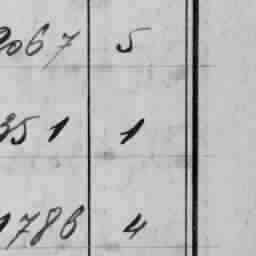 2067 5
351 1
1786 4